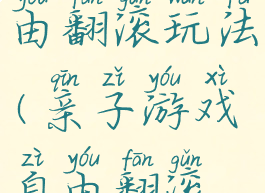 yóu fān gǔn wán fǎ
由翻滚玩法
qīn zǐ yóu xì
(亲子游戏
zì yóu fān gǔn
自由翻滚